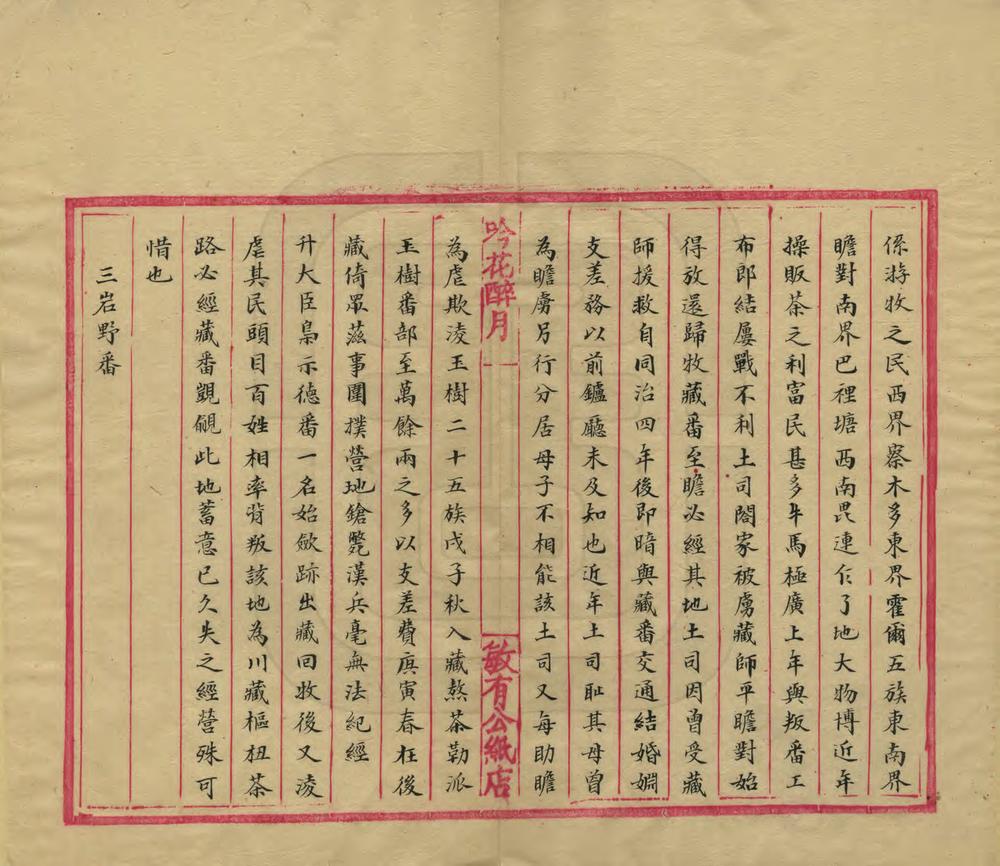 係游牧之民西界察木多東界霍爾五族東南界
瞻對南界巴裡塘西南毘連仁了地大物博近年
操販茶之利富民甚多牛馬極廣上年與叛番工
布郎結屢戰不利土司閤家被虜藏師平瞻對始
得放還歸牧藏番至瞻必經其地土司因曾受藏
師援救自同治四年後即暗與藏番交通結婚姻
支差務以前鑪廳未及知也近年土司恥其母曾
為瞻虜另行分居母子不相能該土司又每助瞻
吟花醉月
一
敏有公紙店
為虐欺凌玉樹二十五族戌子秋入藏熬茶勒派
玉樹番部至萬餘兩之多以支差費庚寅春枉後
藏倚眾滋事圍撲營地鎗斃漢兵毫無法紀經
升大臣梟示德番一名始斂跡出藏回牧後又淩
虐其民頭目百姓相率背叛該地為川藏樞杻茶
路必經藏番覬覦此地蓄意已久失之經營殊可
惜也
三岩野番